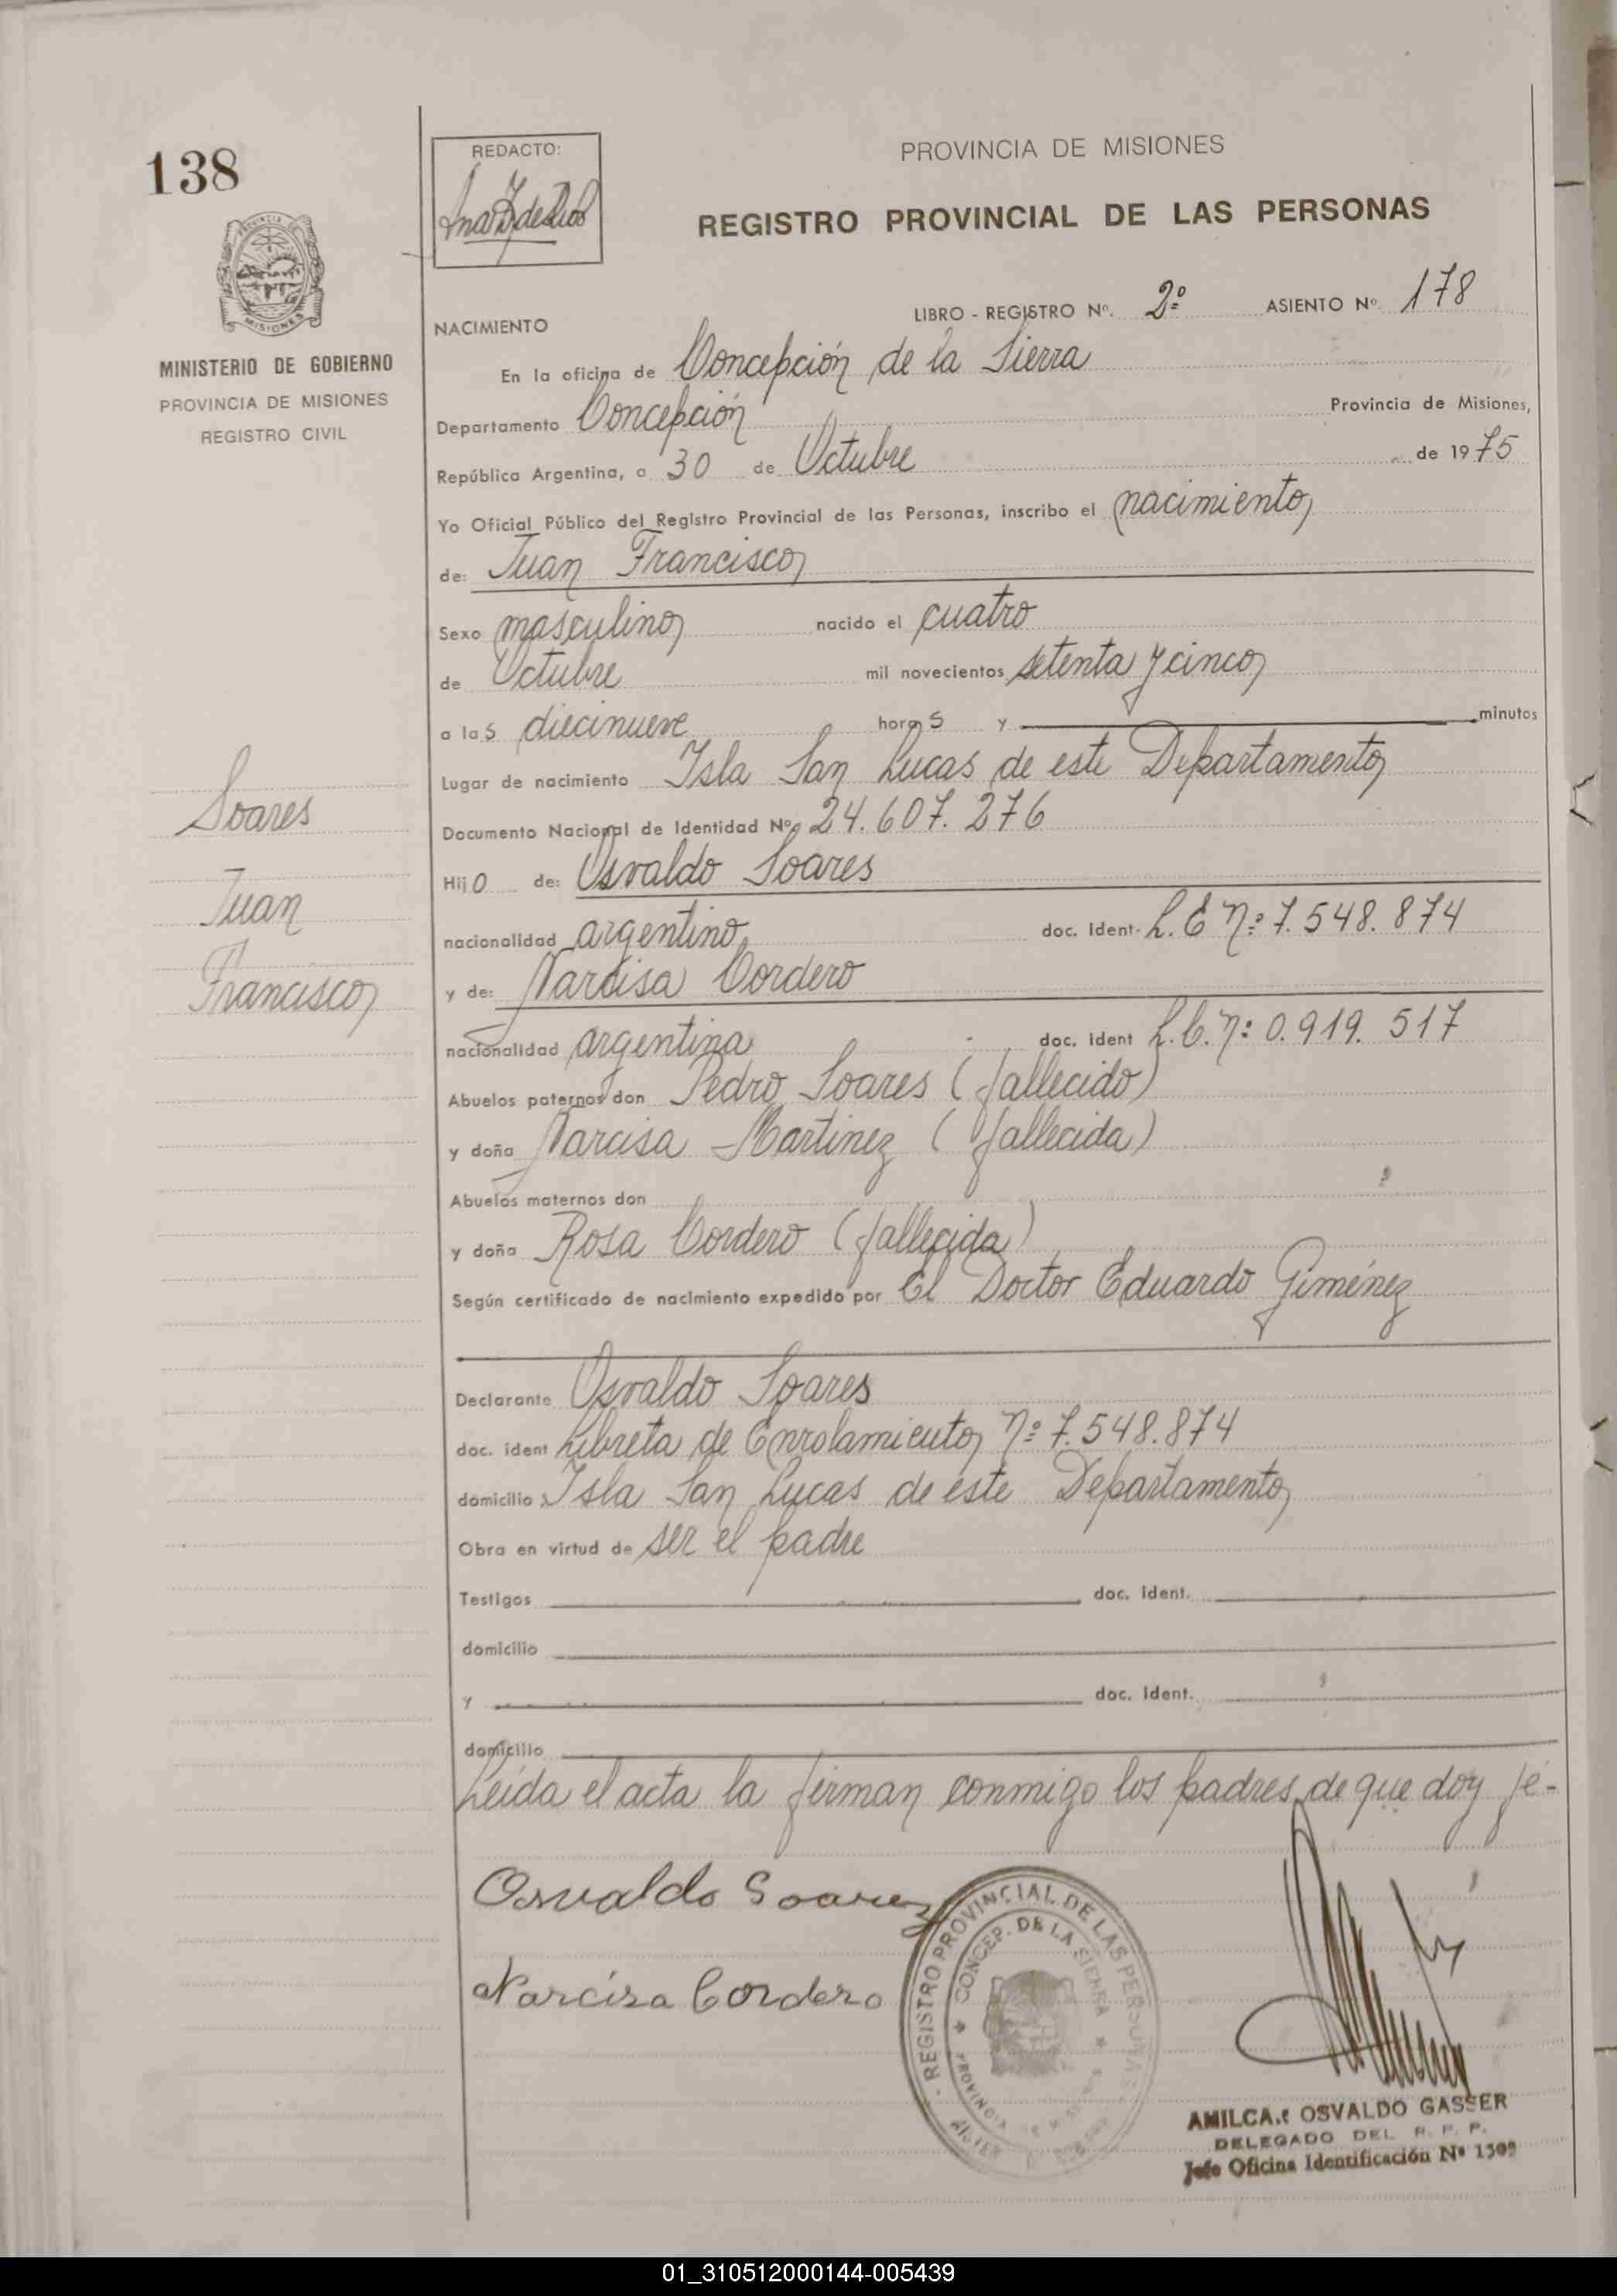 138
REDACTO:
PROVINCIA DE MISIONES
REGISTRO PROVINCIAL DE LAS PERSONAS
MISIONES
MINISTERIO DE GOBIERNO
PROVINCIA DE MISIONES
REGISTRO CIVIL
LIBRO - REGISTRO Nº. 2º ASIENTO Nº. 178
NACIMIENTO
En la oficina de Concepción de la Sierra
Departamento Concepción Provincia de Misiones,
República Argentina, a 30 de Octubre de 1975
Yo Oficial Público del Registro Provincial de las Personas, inscribo el nacimiento
de: Juan Francisco
Sexo masculino nacido el cuatro
de Octubre mil novecientos setenta y cinco
a las diecinueve horas y minutos
Lugar de nacimiento Isla San Lucas de este Departamento
Documento Nacional de Identidad Nº 24.607.276
Hijo de: Osvaldo Soares
nacionalidad argentino doc. ident. L.E Nº: 7.548.874
y de: Narcisa Cordero
nacionalidad argentina doc. ident L.C. Nº: 0.919.517
Abuelos paternos don Pedro Soares (fallecido)
y doña Narcisa Martinez (fallecida)
Abuelos maternos don
y doña Rosa Cordero (fallecida)
Según certificado de nacimiento expedido por El Doctor Eduardo Giménez
Declarante Osvaldo Soares
doc. ident Libreta de Enrolamiento Nº: 7.548.874
domicilio Isla San Lucas de este Departamento
Obra en virtud de ser el padre
Testigos doc. ident.
domicilio
y doc. ident.
domicilio
Leída el acta la firman conmigo los padres, de que doy fé-
Soares
Juan
Francisco
Osvaldo Soarez
Narcisa Cordero
REGISTRO PROVINCIAL DE LAS PERSONAS
CONCEP. DE LA SIERRA
PROVINCIA
AMILCAR OSVALDO GASSER
DELEGADO DEL R. P. P.
Jefe Oficina Identificación Nº 1509
01_310512000144-005439